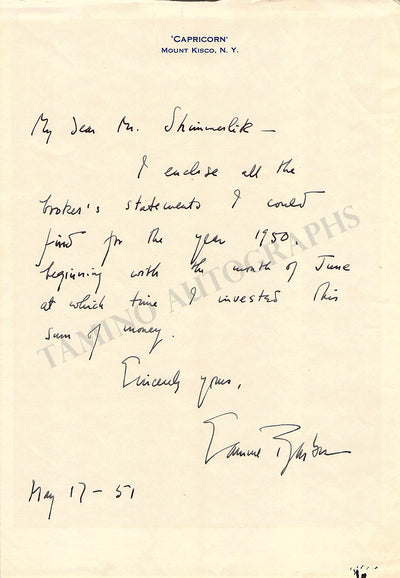 'CAPRICORN'
MOUNT KISCO, N. Y.
My dear Mr. Shimmerlik —
I enclose all the
broker's statements I could
find for the year 1950.
beginning with the month of June
at which time I invested this
sum of money.
Sincerely yours,
Samuel Barber
May 17 - 51
TAMINO AUTOGRAPHS